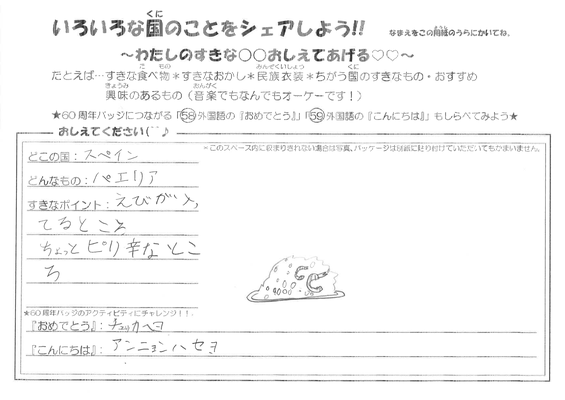 いろいろな国のことをシェアしよう!!
なまえをこの用紙のうらにかいてね。
～わたしのすきな○○おしえてあげる♡♡～
たとえば…すきな食べ物＊すきなおかし＊民族衣装＊ちがう国のすきなもの・おすすめ
興味のあるもの（音楽でもなんでもオーケーです！）
★60周年バッジにつながる「58外国語の『おめでとう』」「59外国語の『こんにちは』」もしらべてみよう★
おしえてください(^^♪
＊このスペース内に収まりきれない場合は写真、パッケージは別紙に貼り付けていただいてもかまいません。
どこの国：スペイン
どんなもの：パエリア
すきなポイント：えびが入っ
てるところ
ちょっとピリ辛なとこ
ろ
★60周年バッジのアクティビティにチャレンジ！！。
『おめでとう』：チュッカヘヨ
『こんにちは』：アンニョンハセヨ